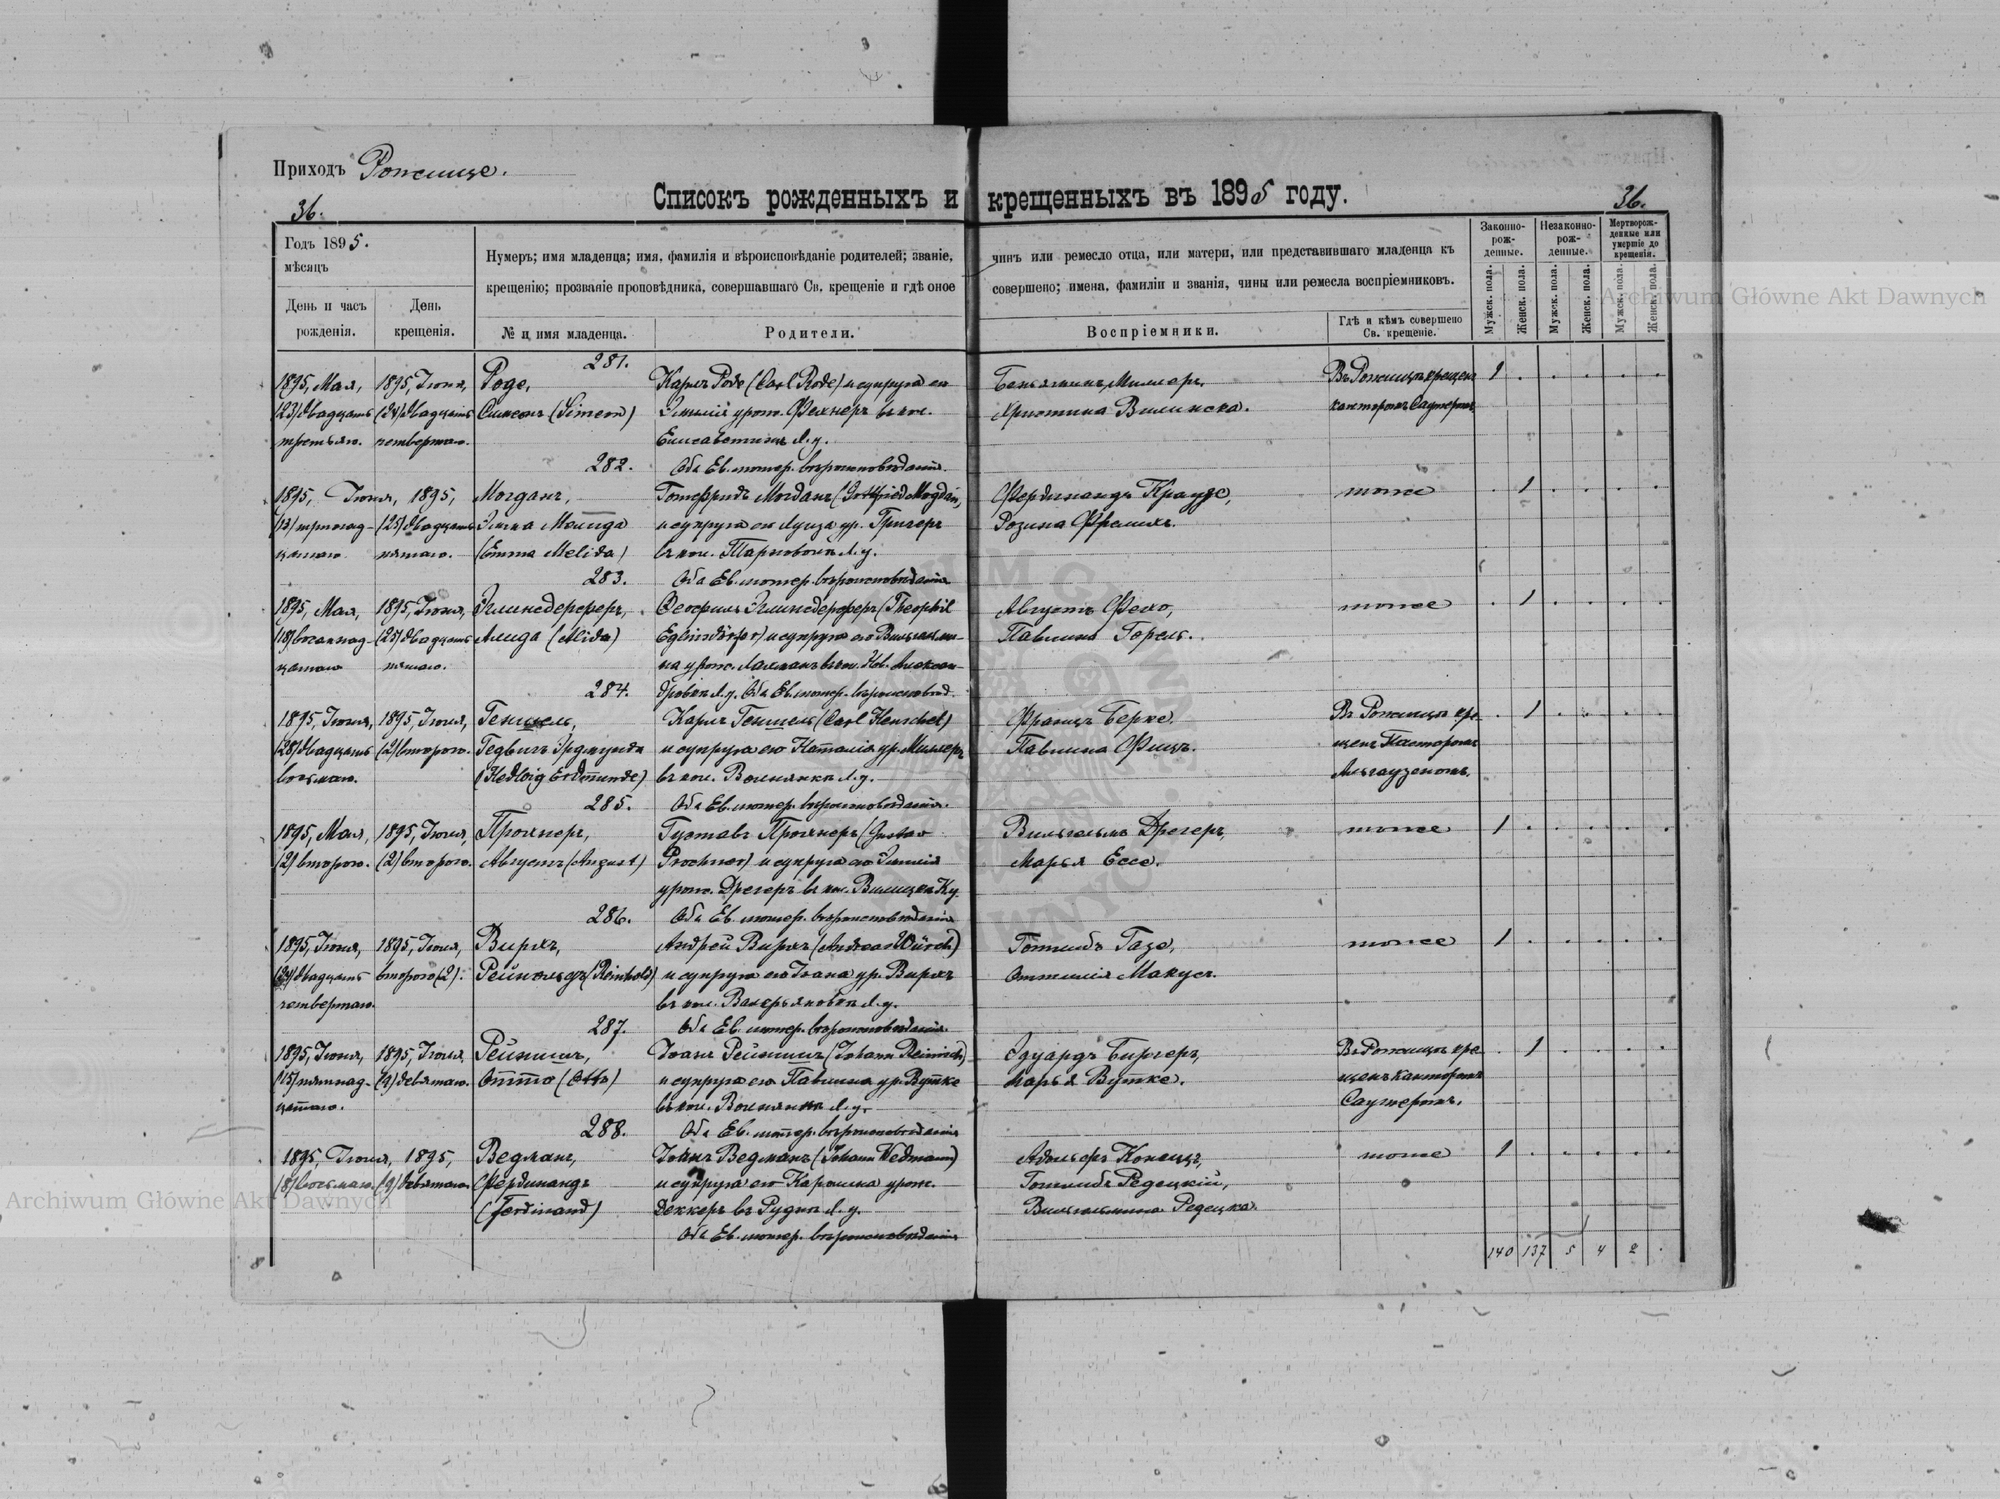 Приходъ Рожище.
Списокъ рожденныхъ и крещенныхъ въ 1895 году.
36.
36.
Годъ 1895.
мѣсяцъ
День и часъ рожденія.
День крещенія.
Нумеръ; имя младенца; имя, фамилія и вѣроисповѣданіе родителей; званіе, чинъ или ремесло отца, или матери, или представившаго младенца къ
крещенію; прозваніе проповѣдника, совершавшаго Св. крещеніе и гдѣ оное совершено; имена, фамиліи и званія, чины или ремесла воспріемниковъ.
№ и имя младенца.
Родители.
Воспріемники.
Гдѣ и кѣмъ совершено
Св. крещеніе.
Законно-
рож-
денные.
Незаконно-
рож-
денные.
Мертворож-
денные или
умершіе до
крещенія.
Мужск. пола.
Женск. пола.
Мужск. пола.
Женск. пола.
Мужск. пола.
Женск. пола.
281.
1895, Мая, 1895, Іюня, Роде, Карлъ Роде (Carl Rode) и супруга его Беньяминъ Миллеръ, Въ Рожищѣ крещенъ 1
(23) двадцать (24) двадцать Симеонъ (Simeon) Эмилія урож. Фехнеръ въ кол. Христина Вилинска. канторомъ
третьяго. четвертаго. Елисаветинъ Л.у.
282. Оба Ев. лютер. вѣроисповѣданія.
1895, Іюня, 1895, Могданъ, Готфридъ Могданъ (Gottfried Mogdan, Фердинандъ Краузе, тоже 1
(13) тринад- (25) двадцать Эмма Мелида и супруга его Луиза ур. Григеръ Розина Фрелихъ.
цатаго пятаго. (Emma Melida) въ кол. Тарновока Л.у.
283. Оба Ев. лютер. вѣроисповѣданія
1895, Мая, 1895, Іюня, Эглинсдерферъ, Теофилъ Эглинсдерферъ (Theophil Августъ тоже 1
(18) восемнад- (25) двадцать Алида (Alida) и супруга его Вильгельми- Павлина Горель.
цатаго пятаго. на урож.
284. Л.у. Оба Ев. лютер. вѣроисповѣд.
1895, Іюня, 1895, Іюля, Геншель, Карлъ Геншель (Carl Henschel) Францъ Берке. Въ Рожищѣ кре- 1
(28) двадцать (2) второго. Гедвигъ Эрдмунда и супруга его Наталія ур. Миллеръ Павлина Фицъ. щенъ Пасторомъ
восьмаго. (Hedwig Erdmunde) въ кол. Волнянка Л.у. Альтгаузеномъ.
285. Оба Ев. лютер. вѣроисповѣданія.
1895, Мая, 1895, Іюля, Прохнеръ, Густавъ Прохнеръ (Gustav Вильгельмъ Дрегеръ, тоже 1
(2) второго. (2) второго. Августъ (August) Prochner) и супруга его Эмилія Марья Ессе.
урож. Дрегеръ въ кол.
286. Оба Ев. лютер. вѣроисповѣданія
1895, Іюня, 1895, Іюля, Вирхъ, Андрей Вирхъ (Andreas Würch) Готлибъ Газе, тоже 1
(24) двадцать второго (2). Рейнольдъ (Reinhold) и супруга его ур. Вирхъ Оттилія Макусъ.
четвертаго. въ кол. Валерьяновка Л.у.
287. Оба Ев. лютер. вѣроисповѣданія.
1895, Іюня, 1895, Іюля, Рейнишъ, Іоанъ Рейнишъ (Johann Reinisch) Эдуардъ Биргеръ, Въ Рожищѣ кре- 1
(15) пятнад- (9) девятаго. Отто (Otto) и супруга его Павлина ур. Вутке Марья Вутке. щенъ канторомъ
цатаго. въ кол. Волнянка Л.у.
288. Оба Ев. лютер. вѣроисповѣданія
1895, Іюля, 1895, Ведманъ, Іоанъ Ведманъ (Johann Wedmann) Адольфъ Конецъ, тоже 1
(8) восьмаго. (9) девятаго. Фердинандъ и супруга его Каролина урож. Готлибъ Редецкій,
(Ferdinand) Деккеръ въ Рудня Л.у. Вильгельмина Редецка.
Оба Ев. лютер. вѣроисповѣданія
140 137 5 4 2 .
Archiwum Główne Akt Dawnych
Archiwum Główne Akt Dawnych